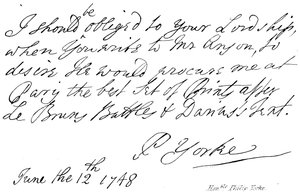 be
I should obliged to Your Lordship,
when You write to Mr Anson, to
desire He would procure me at
Paris the best Set of Prints after
Le Bruns Battles & Darius's Tent.
P Yorke
June the 12th 1748